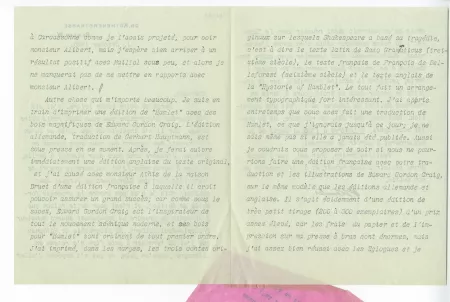 à Giraudonne comme je l'avais projeté, pour voir
monsieur Alibert, mais j'espère bien arriver à un
résultat positif avec Maillol sous peu, et alors je
ne manquerai pas de me mettre en rapports avec
monsieur Alibert.
Autre chose qui m'importe beaucoup. Je suis en
train d'imprimer une édition de "Hamlet" avec des
bois magnifiques de Edward Gordon Craig. L'édition
allemande, traduction de Gerhart Hauptmann, est
sous presse en ce moment. Après, je ferai suivre
immédiatement une édition anglaise du texte original,
et j'ai causé avec monsieur Gibis de la maison
Druet d'une édition française à laquelle il croit
pouvoir assurer un grand succès, car comme vous le
savez, Edward Gordon Craig est l'inspirateur de
tout le mouvement scénique moderne, et ses bois
pour "Hamlet" sont vraiment de tout premier ordre.
J'ai imprimé, dans les marges, les trois contes ori-
ginaux sur lesquels Shakespeare a basé sa tragédie,
c'est à dire le texte latin de Saxo Grammaticus (trei-
zième siècle), le texte français de François de Bel-
leforest (seizième siècle) et le texte anglais de
la "Hystorie of Hamblet". Le tout fait un arrange-
ment typographique fort intéressant. J'ai appris
entretemps que vous avez fait une traduction de
Hamlet, et que j'ignorais jusqu'à ce jour; je ne
sais même pas si elle a jamais été publiée. Aussi
je voudrais vous proposer de voir si nous ne pour-
rions faire une édition française avec votre tra-
duction et les illustrations de Edward Gordon Craig,
sur le même modèle que les éditions allemande et
anglaise. Il s'agit évidemment d'une édition de
très petit tirage (200 à 300 exemplaires) d'un prix
assez élevé, car les frais du papier et de l'im-
pression sur ma presse à bras sont énormes, mais
j'ai assez bien réussi avec les Eglogues et je